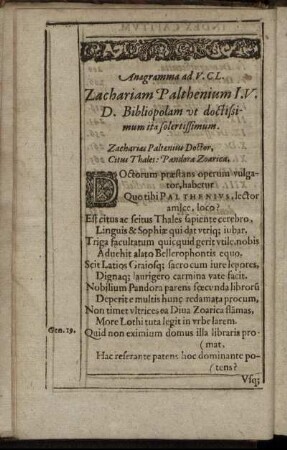 Anagramma ad V. CL.
Zachariam Palthenium I.V.
D. Bibliopolam vt doctissi-
mum ita solertissimum.
Zacharias Paltenius Doctor,
Citus Thales: Pandora Zoarica,
DOctorum præstans operum vulga-
tor, habetur
Quo tibi PALTHENIVS, lector
amice, loco?
Est citus ac scitus Thales sapiente cerebro,
Linguis & Sophiæ qui dat vtriq; iubar,
Triga facultatum quicquid gerit vtile, nobis
Aduehit alato Bellerophontis equo,
Scit Latios Graiosq; sacro cum iure lepores,
Dignaq; laurigero carmina vate facit.
Nobilium Pandora parens fœcunda librorū
Deperit e multis hunc redamata procum,
Non timet vltrices ea Diua Zoarica flāmas,
Gen. 19. More Lothi tuta legit in vrbe larem.
Quid non eximium domus illa libraria pro-
(mat,
Hac reserante patens hoc dominante po-
(tens?
Vsq;